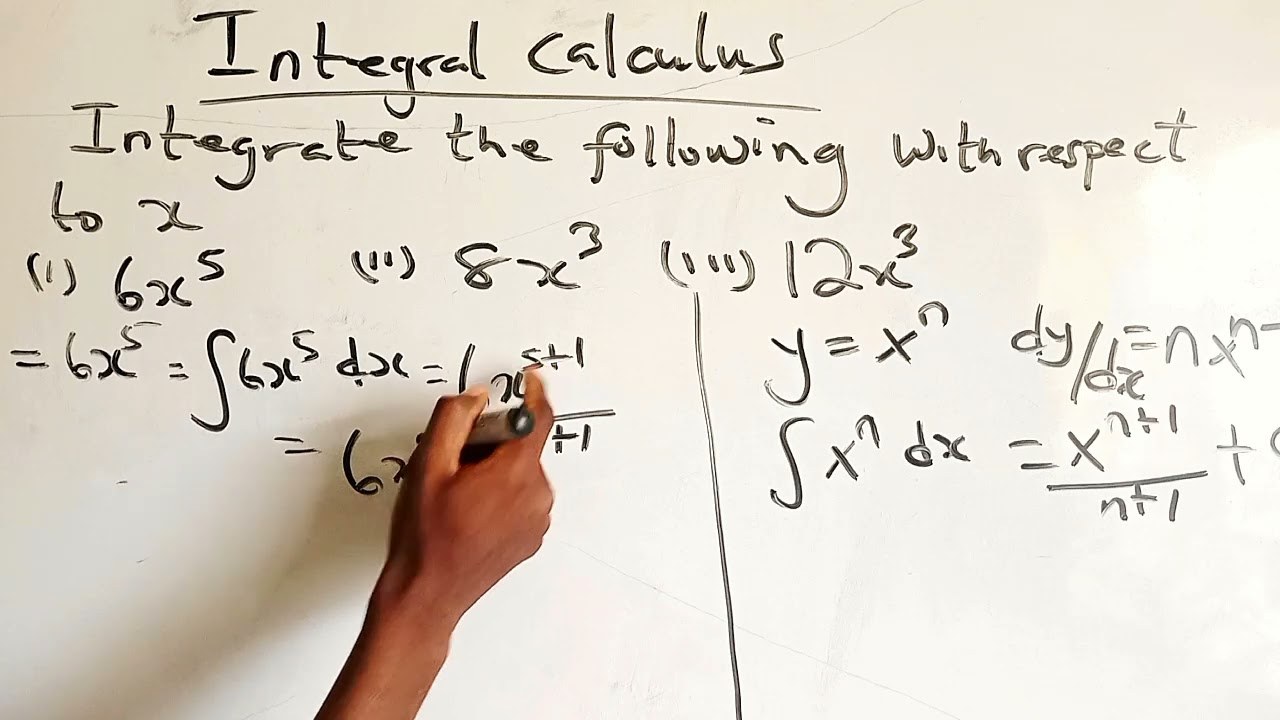 Integral Calculus
Integrate the following with respect
to x
(i) 6x⁵ (ii) 8x³ (iii) 12x³
= 6x⁵ = ∫6x⁵ dx = 6x⁵⁺¹
+1
= 6x
y = xⁿ dy/dx = nxⁿ⁻
∫xⁿ dx = xⁿ⁺¹ +
n+1